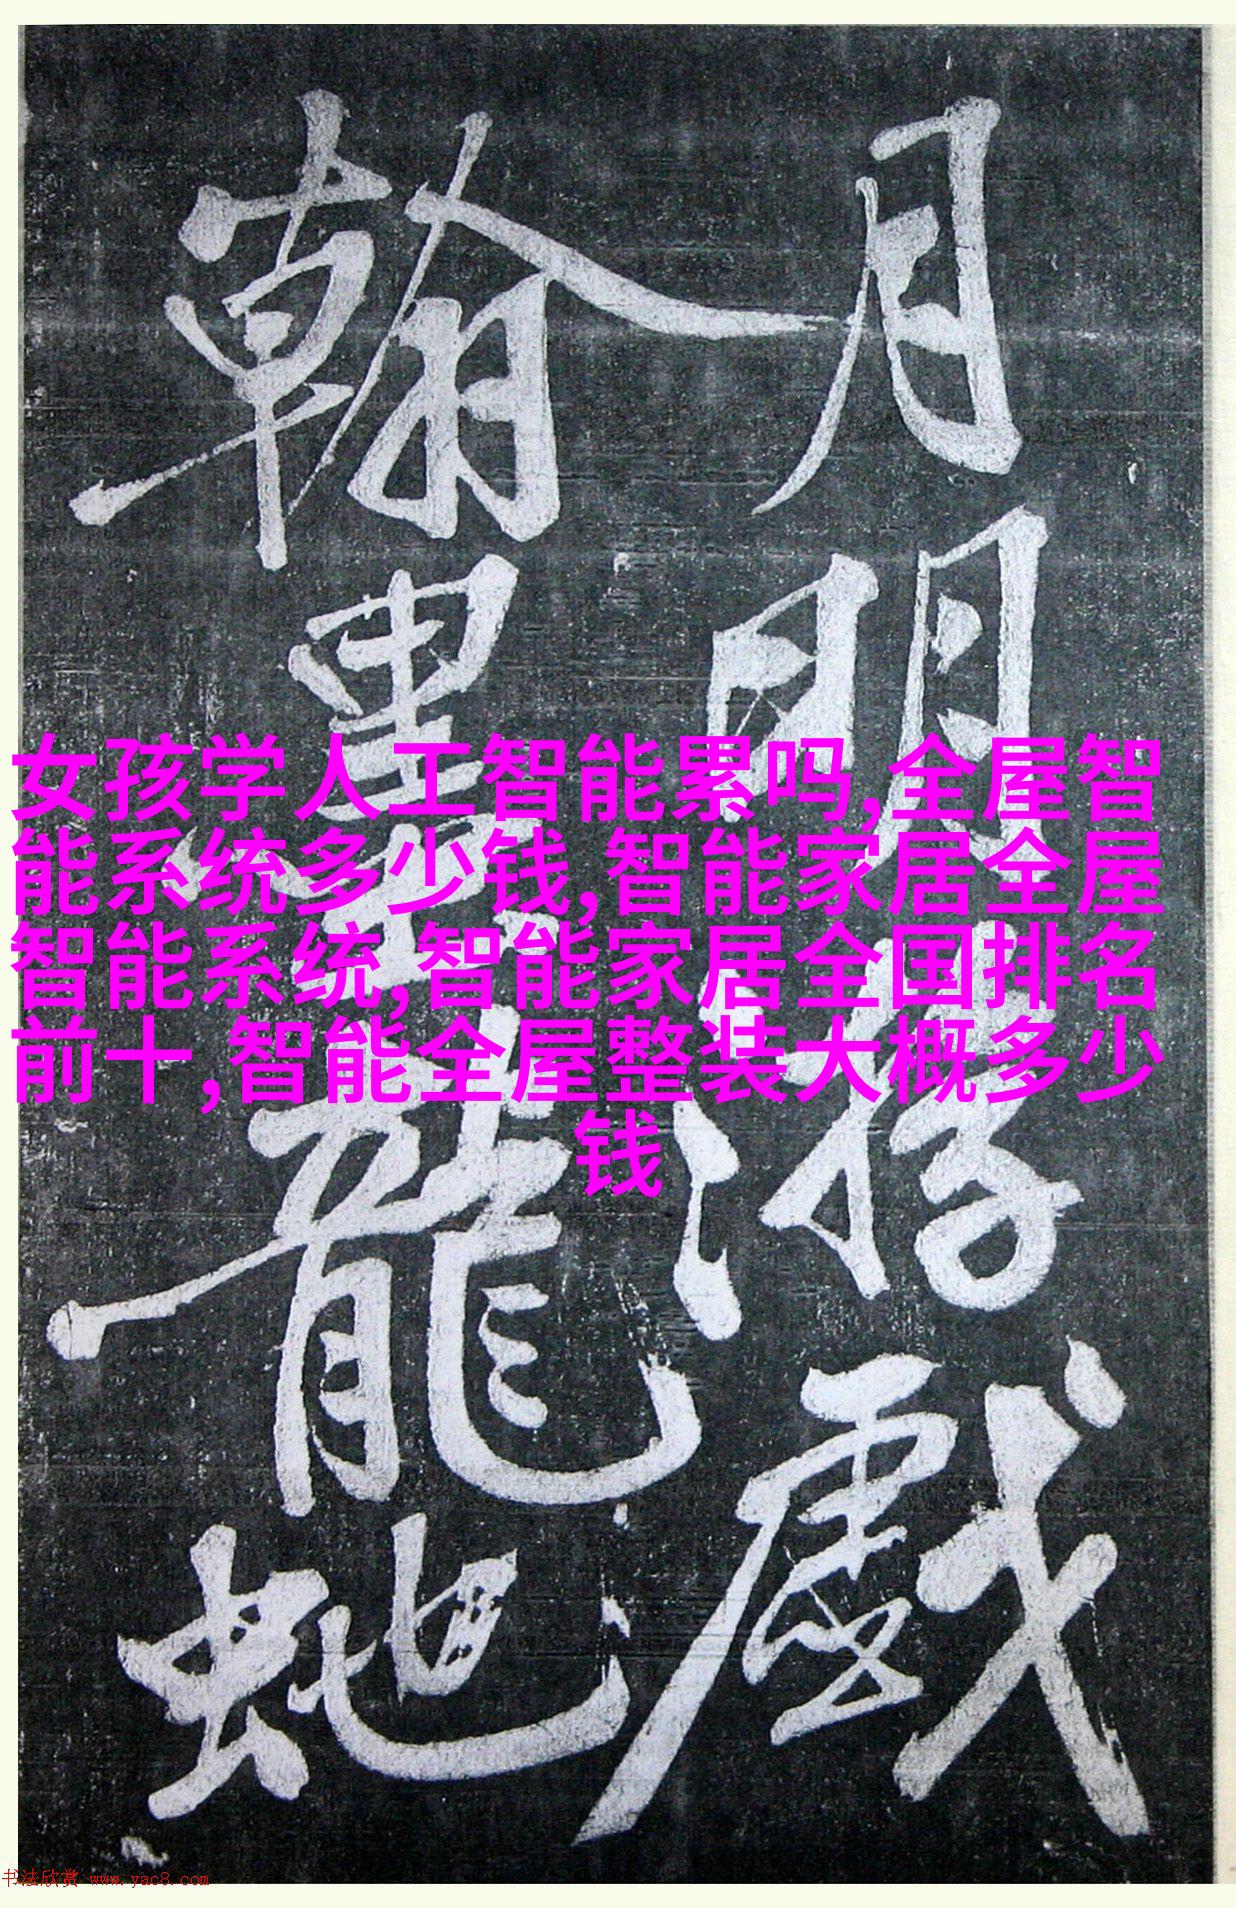 月明游戲
翰墨龍蛇
女孩学人工智能累吗,全屋智
能系统多少钱,智能家居全屋
智能系统,智能家居全国排名
前十,智能全屋整装大概多少
钱
书法欣赏 www.yac8.com